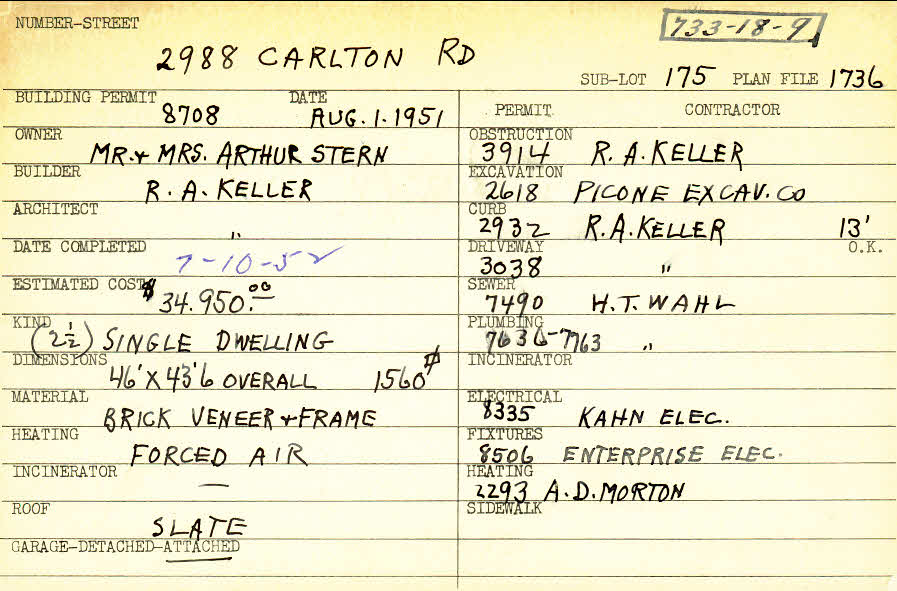 NUMBER-STREET
733-18-9
2988 CARLTON RD
SUB-LOT 175 PLAN FILE 1736
BUILDING PERMIT DATE
8708 AUG. 1. 1951
OWNER
MR. + MRS. ARTHUR STERN
BUILDER
R. A. KELLER
ARCHITECT
"
DATE COMPLETED
7-10-52
ESTIMATED COST
$ 34.950.00
KIND
(2 1/2) SINGLE DWELLING
DIMENSIONS
46' X 43'6 OVERALL 1560
MATERIAL
BRICK VENEER + FRAME
HEATING
FORCED AIR
INCINERATOR
—
ROOF
SLATE
GARAGE-DETACHED-ATTACHED
PERMIT CONTRACTOR
OBSTRUCTION
3914 R. A. KELLER
EXCAVATION
2618 PICONE EXCAV. CO
CURB
2932 R. A. KELLER 13'
DRIVEWAY O.K.
3038 "
SEWER
7490 H. T. WAHL
PLUMBING
7636-7763 "
INCINERATOR
ELECTRICAL
8335 KAHN ELEC.
FIXTURES
8506 ENTERPRISE ELEC.
HEATING
2293 A. D. MORTON
SIDEWALK